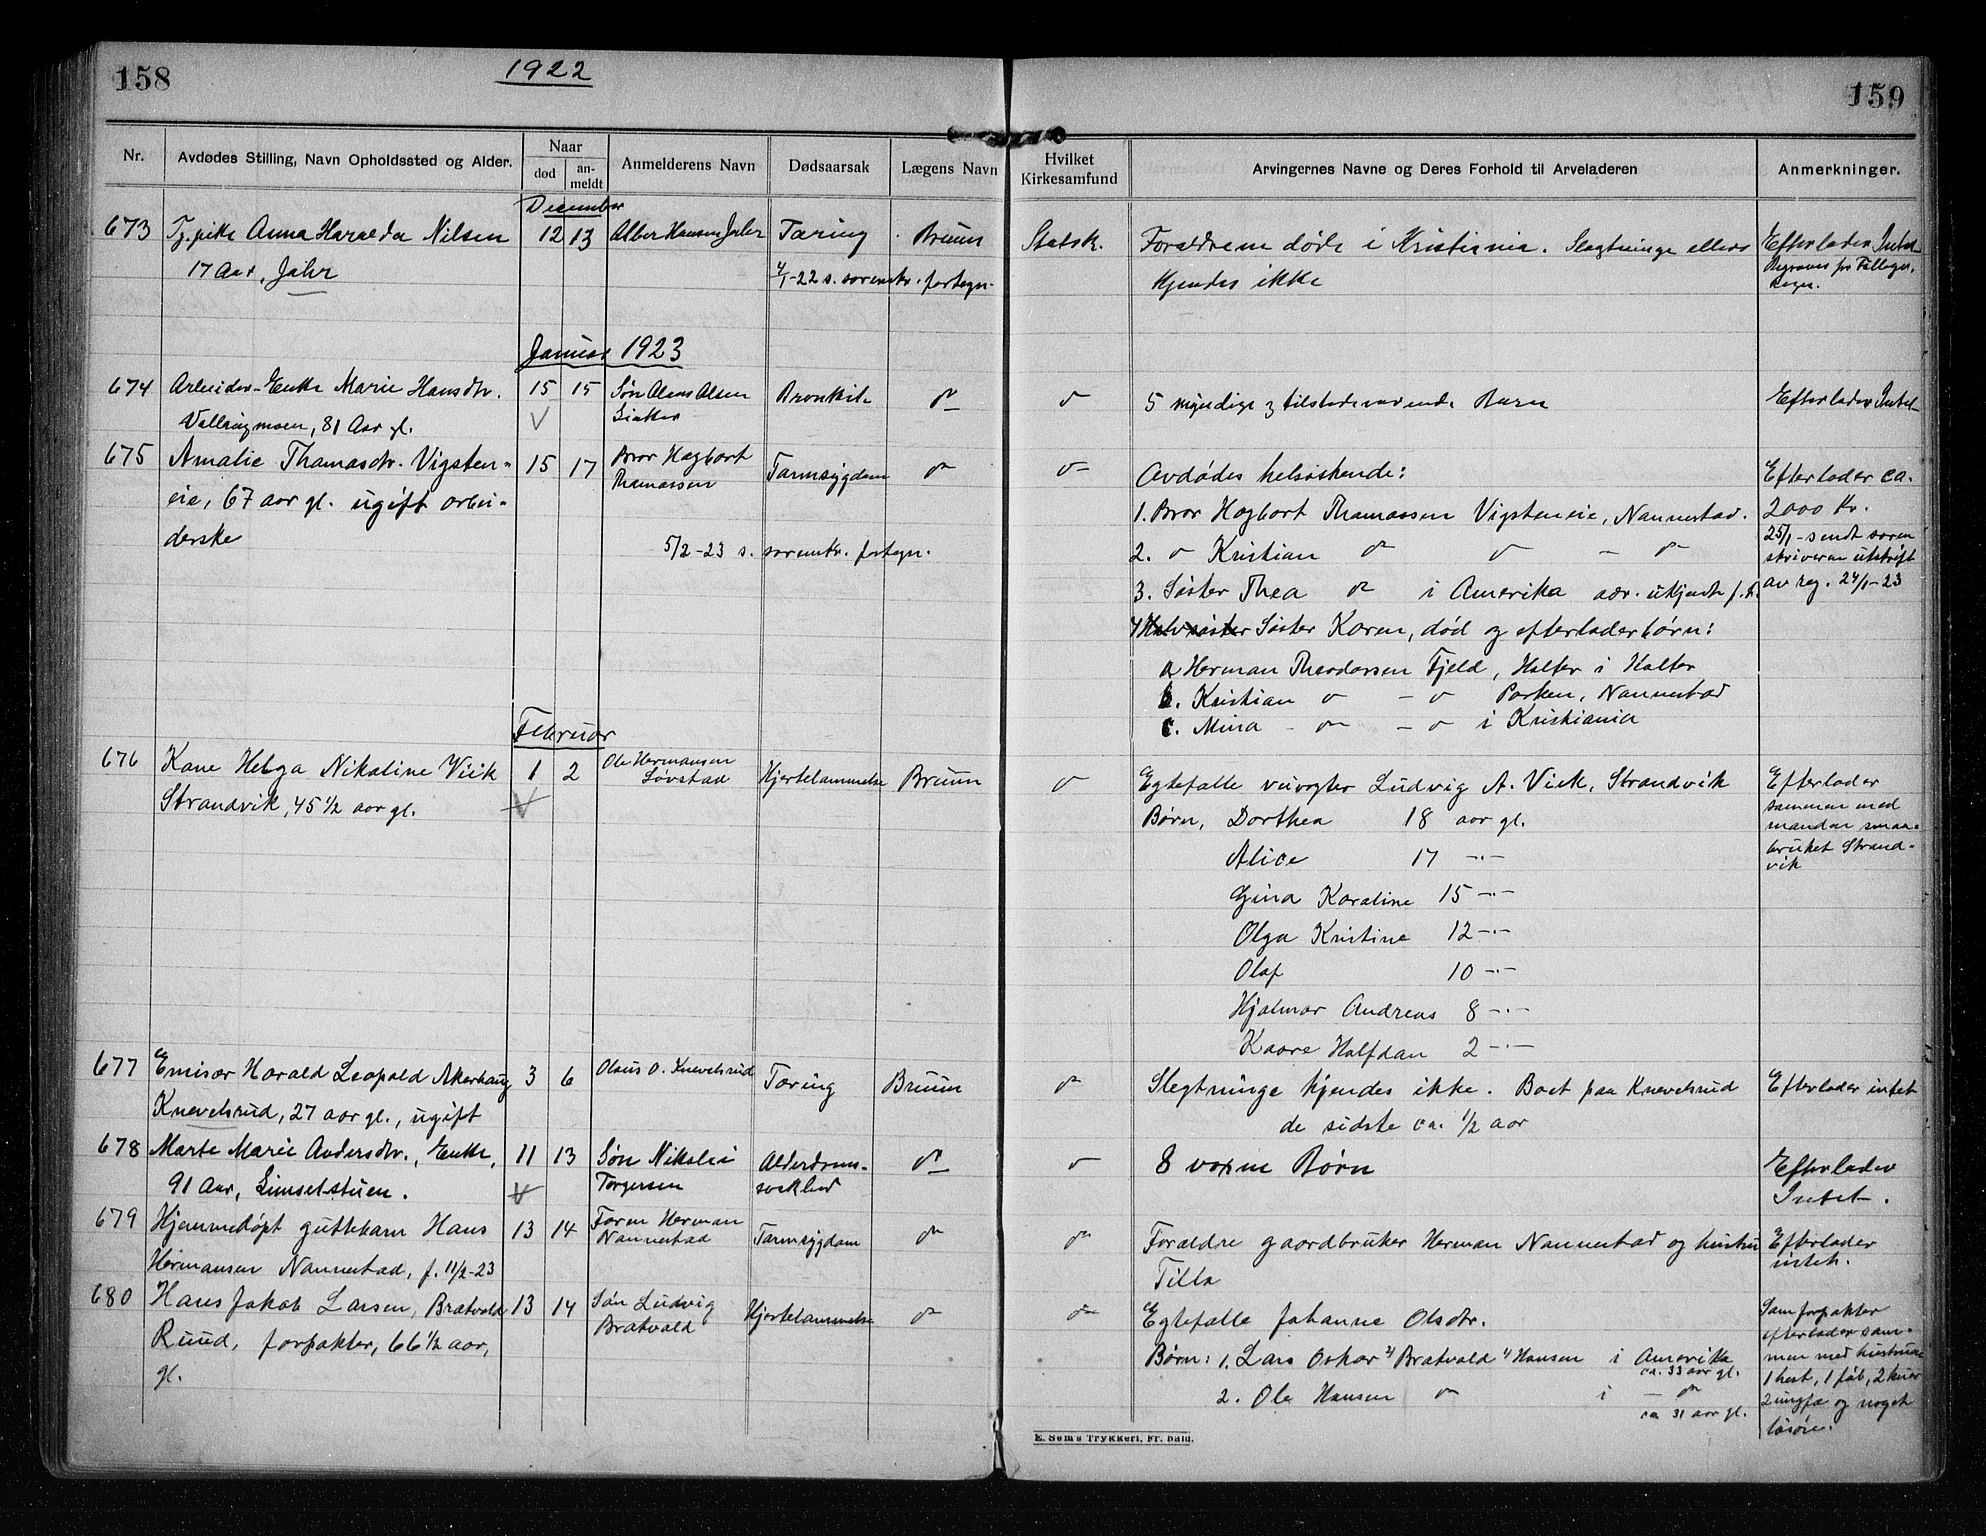 158
1922
159
Nr.
Avdødes Stilling, Navn Opholdssted og Alder.
Naar
død
an-
meldt
Anmelderens Navn
Dødsaarsak
Lægens Navn
Hvilket
Kirkesamfund
Arvingernes Navne og Deres Forhold til Arveladeren
Anmerkninger.
December
673 Tj. pike Anna Haralda Nilsen 12 13 Alber Hansen Jahr Tæring Bruun Statsk. Forældrene døde i Kristiania. Slegtninge ellers Efterlader Intet
17 Aar, Jahr 4/1-22 s. sorenskr. fortegn. kjendes ikke Begraves for Fattigv. Regn.
Januar 1923
674 Arbeider-Enke Marie Hansdtr. 15 15 Søn Olaus Olsen Bronkit " " 5 myndige og tilstedeværende Barn Efterlader Intet
Vællingmoen, 81 Aar gl. V
675 Amalie Thomasdtr. Vigsten- 15 17 Bror Hagbart Tarmsygdom " " Avdødes helsøskende: Efterlader ca.
eie, 67 aar gl. ugift arbei- Thomassen 1. Bror Hagbart Thomassen Vigsteneie, Nannestad. 2000 Kr.
derske 5/2-23 s. sorenskr. fortegn. 2. " Kristian " " - " 25/1-sendt soren
skriveren utskrift
3. Søster Thea " i Amerika adr. ukjendt f. t. av reg. 24/1-23
4 Halvsøster Søster Karen, død og efterlader børn:
a Herman Theodorsen Fjeld, Holter i Holter
b. Kristian " - " Parken, Nannestad
c. Mina - " - " i Kristiania
Februar
676 Kone Helga Nikoline Viik 1 2 Ole Hermansen Hjertelammelse Bruun " Egtefælle vuvogter Ludvig A. Viik, Strandvik Efterlader
Strandvik, 45 1/2 aar gl. V Løvstad Børn, Dorthea 18 aar gl. sammen med
manden smaa-
Alice 17 -"- bruket Strand-
vik
Gina Karoline 15 -"-
Olga Kristine 12 -"-
Olaf 10 -"-
Hjalmar Andreas 8 -"-
Kaare Halfdan 2 -"-
677 Emisær Harald Leopold Akerhaug 3 6 Olaus O. Knevelsrud Tæring Bruun " Slegtninge kjendes ikke. Boet paa Knevelsrud Efterlader intet
Knevelsrud, 27 aar gl., ugift de sidste ca. 1/2 aar
678 Marte Marie Andersdtr., Enke, 11 13 Søn Nikolai Alderdoms- " " 8 voxne Børn Efterlader
91 Aar, Linselstuen. V Torgersen svækhed Intet.
679 Hjemmedøpt guttebarn Hans 13 14 Faren Herman Tarmsygdom " " Forældre gaardbruker Herman Nannestad og hustru Efterlader
Hermansen Nannestad, f. 11/2-23 Nannestad Tilla intet.
680 Hans Jakob Larsen, Bratvald 13 14 Søn Ludvig Hjertelammelse " " Egtefælle Johanne Olsdtr. Som forpakter
Ruud, forpakter, 66 1/2 aar, Bratvald efterlader sam-
gl. Børn: 1. Lars Oskar Bratvald Hansen i Amerika men med hustruen
ca. 33 aar gl. 1 hest, 1 føl, 2 kuer
2. Ole Hansen " i - " 2 ungfæ og noget
ca 31 aar gl. løsøre.
E. Sem's Trykkeri, Fr. hald.